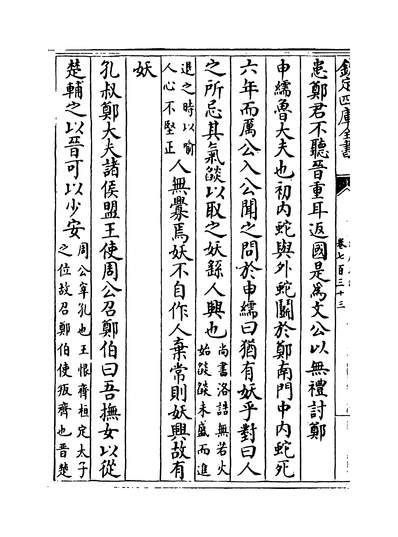 欽定四庫全書
卷七百三十三
患鄭君不聽晉重耳返國是為文公以無禮討鄭
申繻魯大夫也初內蛇與外蛇鬬於鄭南門中內蛇死
六年而厲公入公聞之問於申繻曰猶有妖乎對曰人
之所忌其氣燄以取之妖繇人興也
尚書洛誥無若火
始燄燄未盛而進
退之時以喻
人心不堅正
人無釁焉妖不自作人棄常則妖興故有
妖
孔叔鄭大夫諸侯盟王使周公召鄭伯曰吾撫女以從
楚輔之以晉可以少安
周公宰孔也王恨齊桓定太子
之位故召鄭伯使叛齊也晉楚